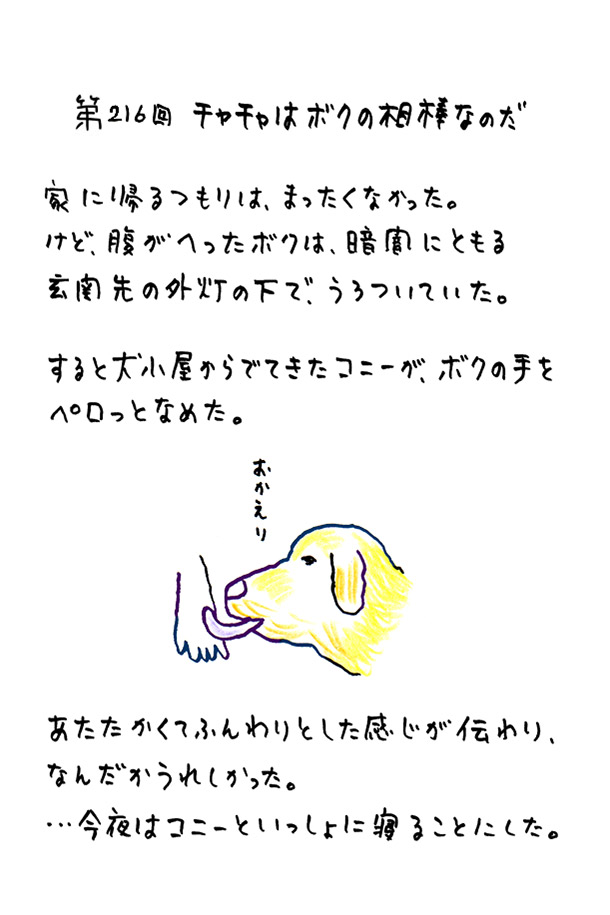 第216回 チャチャはボクの相棒なのだ
家に帰るつもりは、まったくなかった。
けど、腹がへったボクは、暗闇にともる
玄関先の外灯の下で、うろついていた。
すると犬小屋からでてきたコニーが、ボクの手を
ペロっとなめた。
おかえり
あたたかくてふんわりとした感じが伝わり、
なんだかうれしかった。
…今夜はコニーといっしょに寝ることにした。